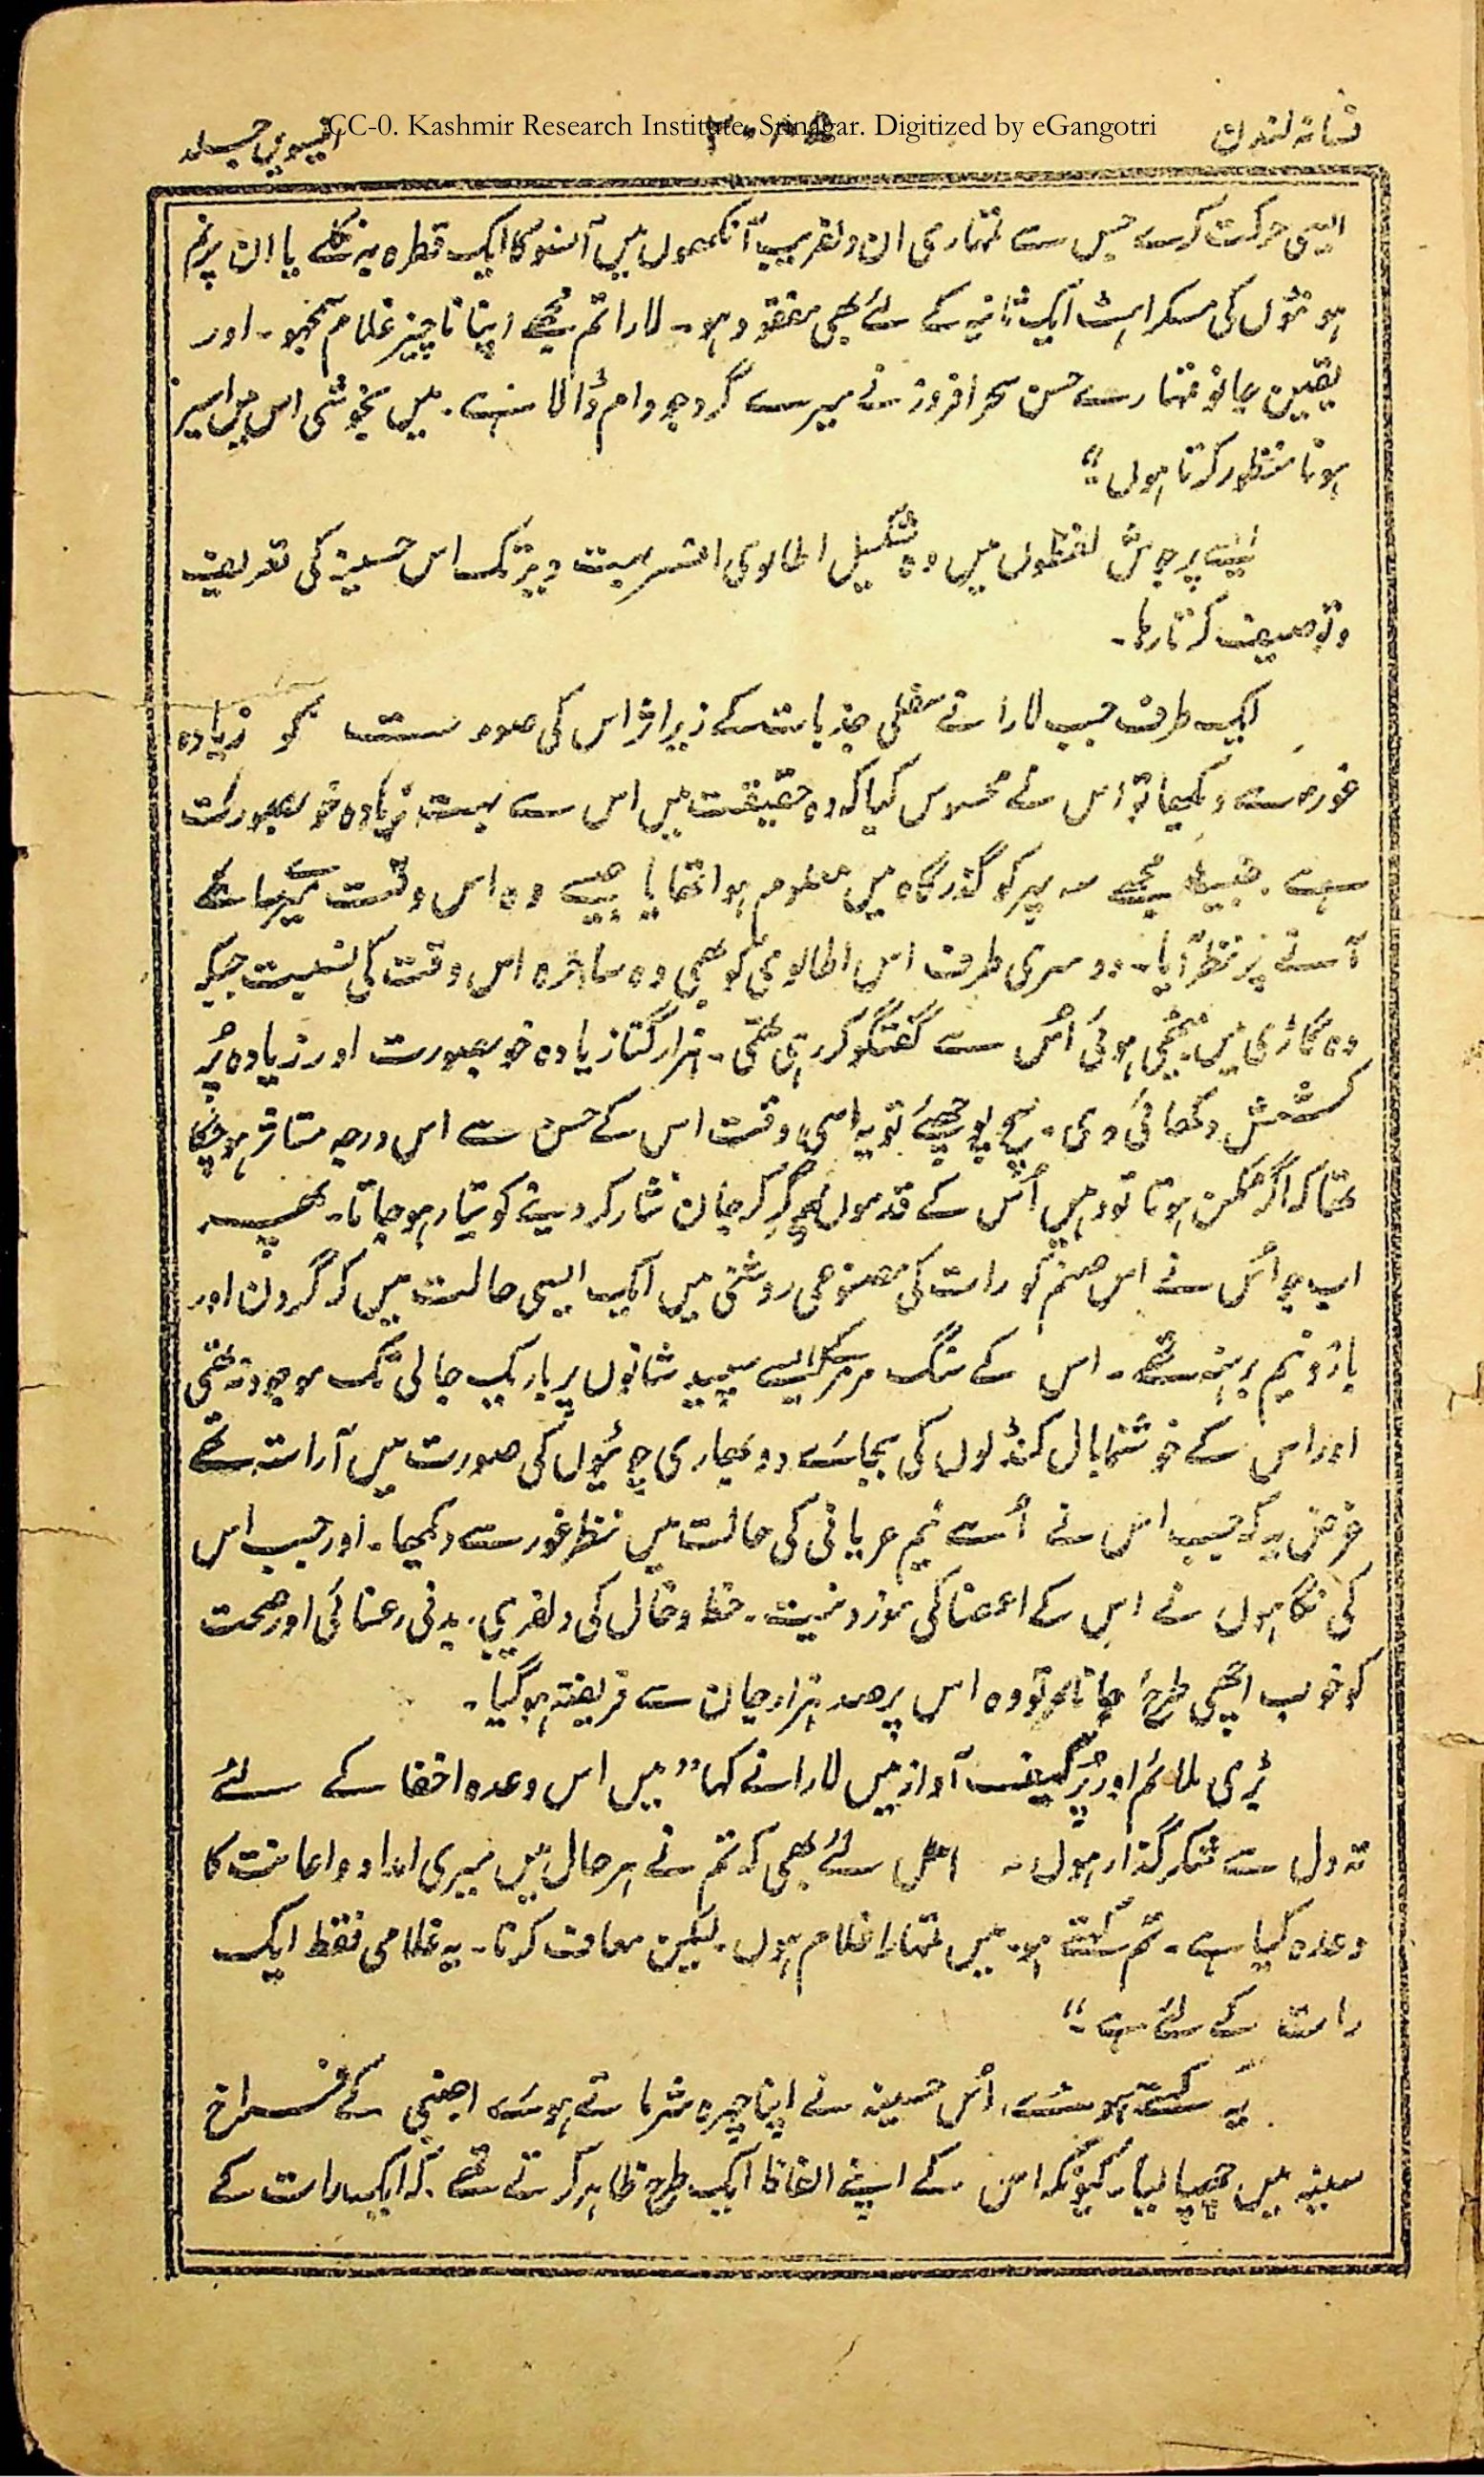 فسانہ لندن
CC-0. Kashmir Research Institute, Srinagar. Digitized by eGangotri
اکیسویں جلد
ایسی حرکت کرے جس سے تمہاری ان دلفریب آنکھوں میں آنسو کا ایک قطرہ نہ نکلے یا ان پرنم
ہونٹوں کی مسکراہٹ ایک ثانیہ کے لئے بھی مفقود ہو۔ لارا تم مجھے اپنا ناچیز غلام سمجھو۔ اور
یقین جانو تمہارے حسن سحر افروز نے میرے گرد جو دام ڈالا ہے۔ میں بخوشی اس میں اسیر
ہونا منظور کرتا ہوں"
ایسے پرجوش لفظوں میں وہ شکیل اطالوی افسر بہت دیر تک اس حسینہ کی تعریف
و توصیف کرتا رہا۔
ایک طرف جب لارا نے سفلی جذبات کے زیر اثر اس کی صورت کو زیادہ
غور سے دیکھا تو اس نے محسوس کیا کہ وہ حقیقت میں اس سے بہت زیادہ خوبصورت
ہے۔ جیسا مجھے سہ پہر کو گذرگاہ میں معلوم ہوا تھا یا جیسے وہ اس وقت میرے سامنے
آنے پر نظر آیا۔ دوسری طرف اس اطالوی کو بھی وہ ساحرہ اس وقت کی نسبت جبکہ
وہ گاڑی میں بیٹھی ہوئی اُس سے گفتگو کر رہی تھی۔ ہزار گنا زیادہ خوبصورت اور زیادہ پُر
کشش دکھائی دی۔ سچ پوچھئے تو یہ اسی وقت اس کے حسن سے اس درجہ متاثر ہو چکا
تھا کہ اگر ممکن ہوتا تو وہیں اُس کے قدموں پر گر کر جان نثار کر دینے کو تیار ہو جاتا۔ پھر
اب جو اُس نے اس صنم کو رات کی مصنوعی روشنی میں ایک ایسی حالت میں کہ گردن اور
بازو نیم برہنہ تھے۔ اس کے سنگ مرمر کے ایسے سپید شانوں پر باریک جالی تک موجود نہ تھی
اور اس کے خوشنما بال کنڈلوں کی بجائے دو بھاری چوٹیوں کی صورت میں آراستہ تھے
غرض یہ کہ جب اس نے اُسے نیم عریانی کی حالت میں نظر غور سے دیکھا۔ اور جب اس
کی نگاہوں نے اس کے اعضا کی موزونیت۔ خط و خال کی دلفریبی۔ بدنی رعنائی اور صحت
کو خوب اچھی طرح جانا تو وہ اس پر صد ہزار جان سے فریفتہ ہو گیا۔
بڑی ملائم اور پُر کیف آواز میں لارا نے کہا "میں اس وعدہ اخفا کے لئے
تہ دل سے شکر گذار ہوں۔ اس لئے بھی کہ تم نے ہر حال میں میری امداد و اعانت کا
وعدہ کیا ہے۔ تم کہتے ہو۔ میں تمہارا غلام ہوں۔ لیکن معاف کرنا۔ یہ غلامی فقط ایک
رات کے لئے ہے۔"
یہ کہتے ہوئے، اُس حسینہ نے اپنا چہرہ شرماتے ہوئے اجنبی کے فراخ
سینہ میں چھپا لیا۔ کیونکہ اس کے اپنے الفاظ ایک طرح ظاہر کرتے تھے کہ ایک رات کے